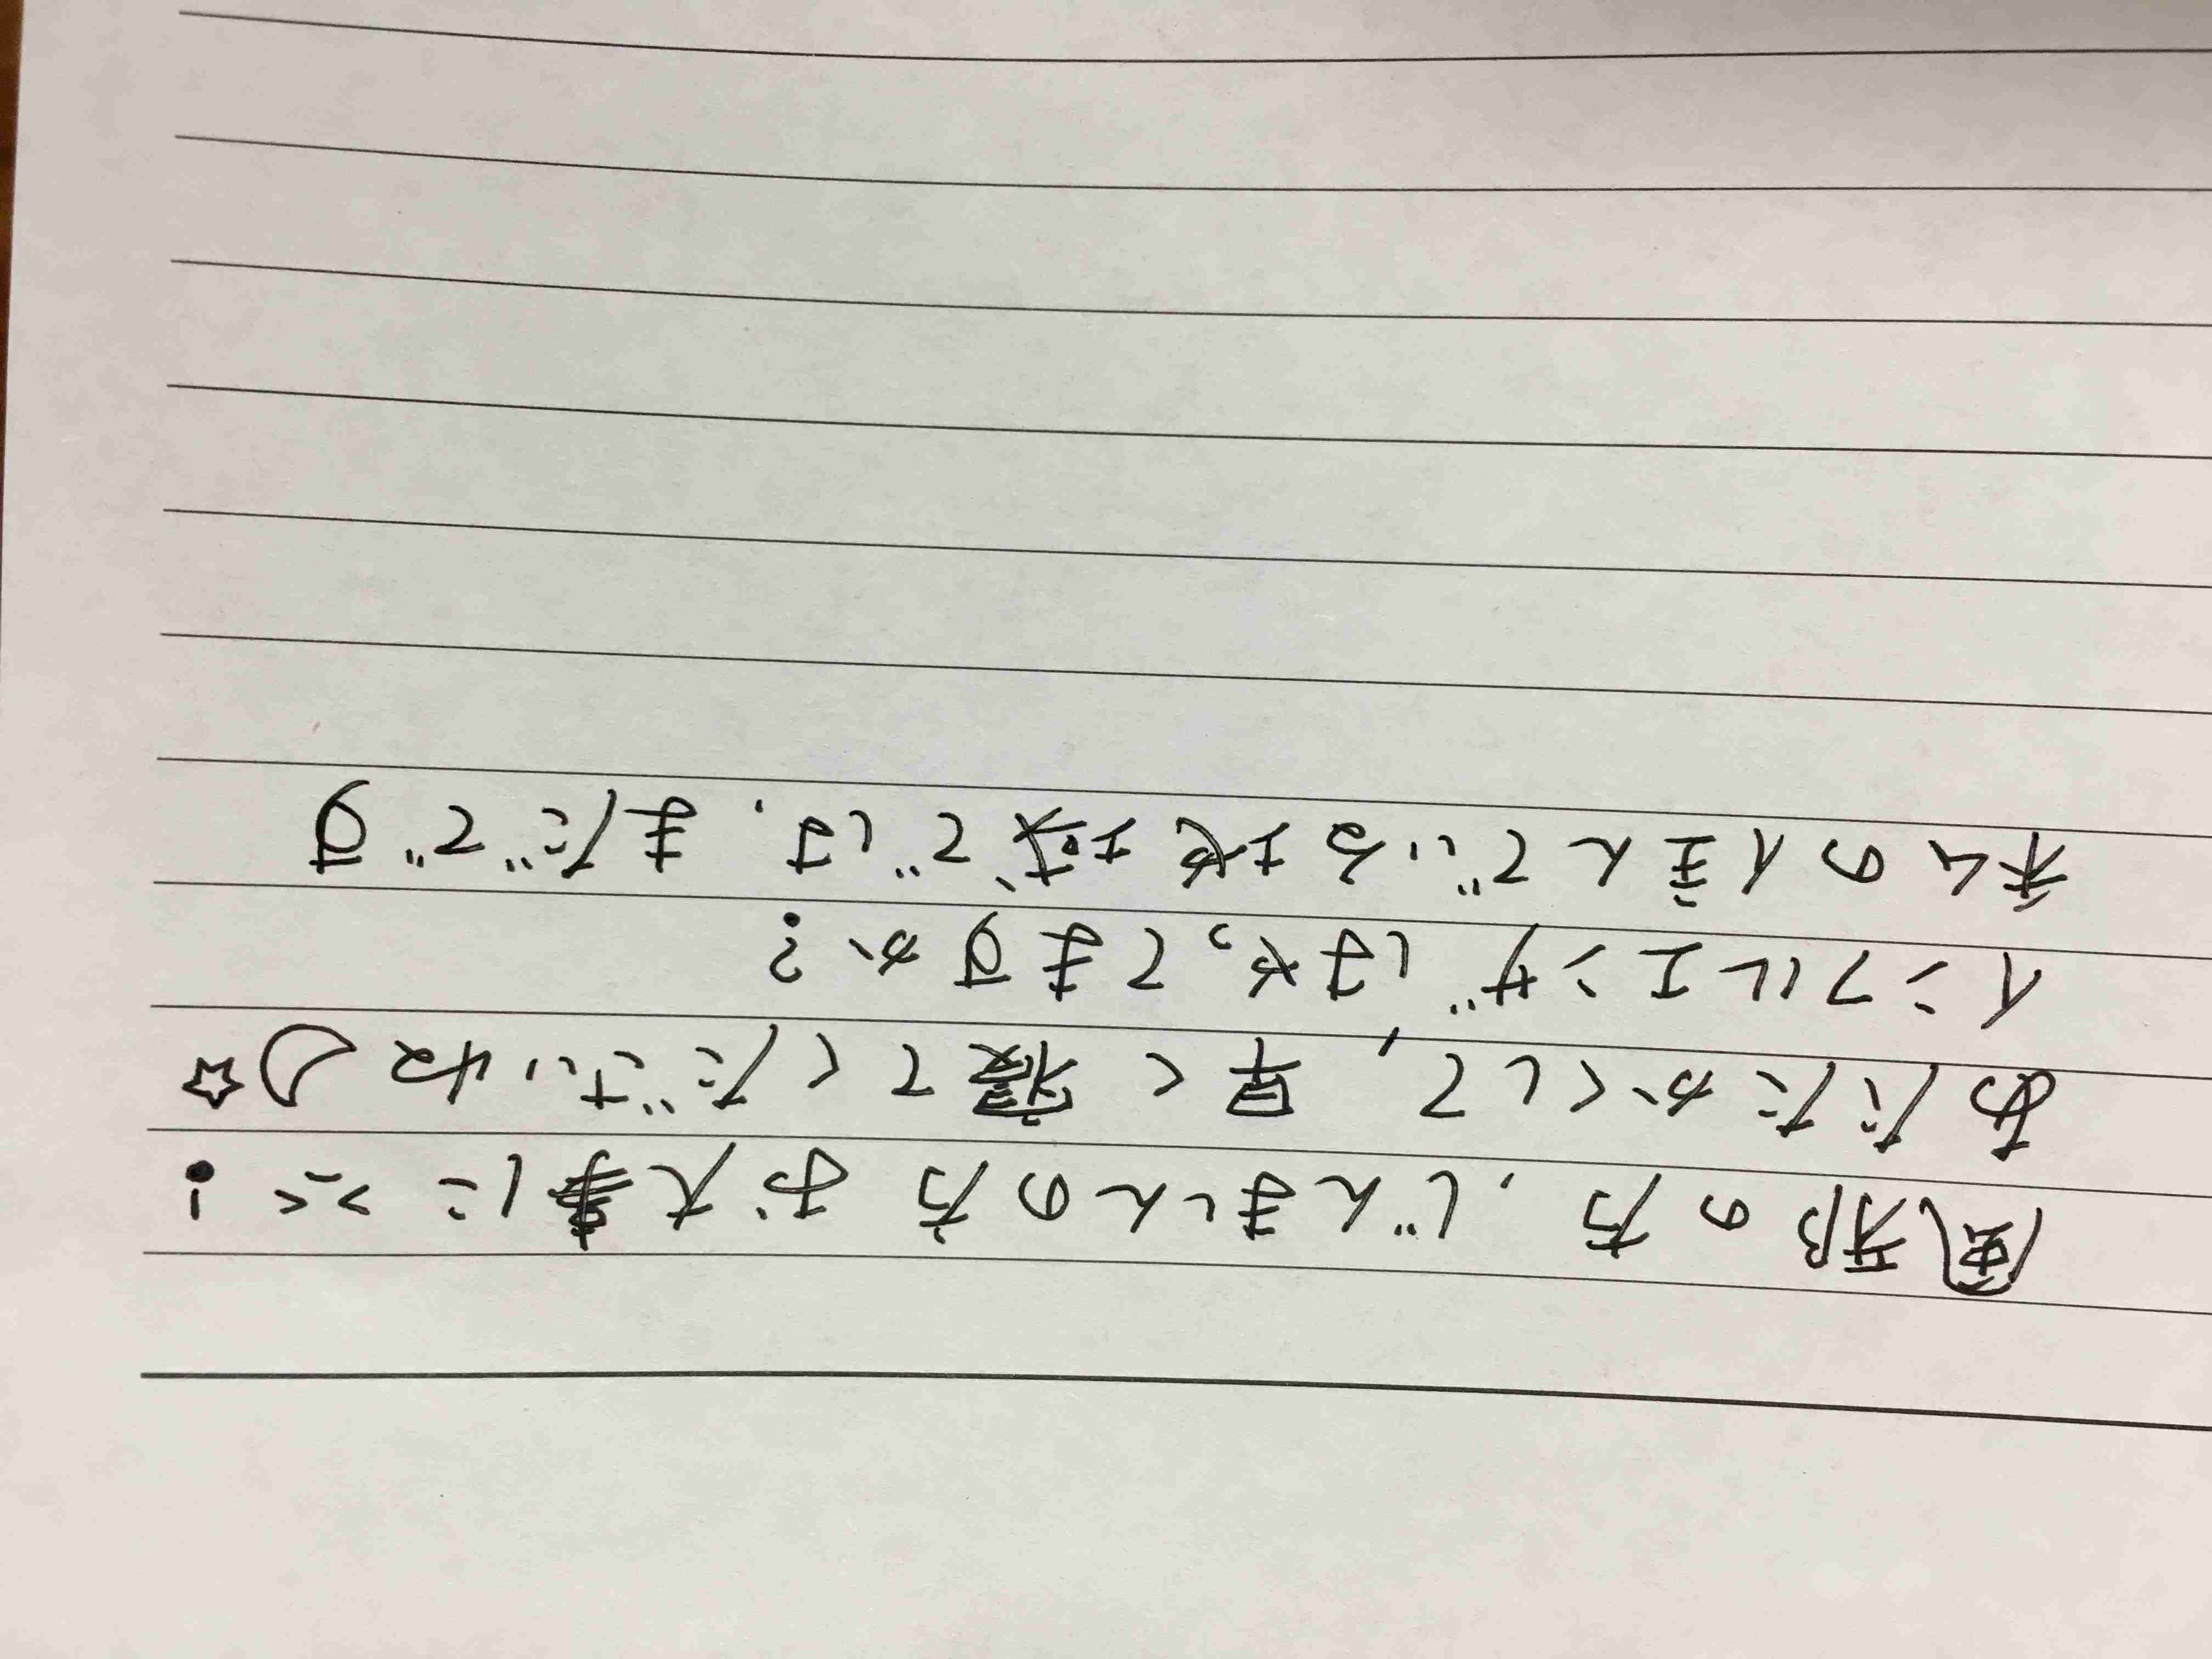 風邪の方、じんましんの方 お大事に＞_＜!
あたたかくして, 早く寝てくださいね☽☆
インフルエンザ はやってますか?
私の住んでいる地域では、まだです